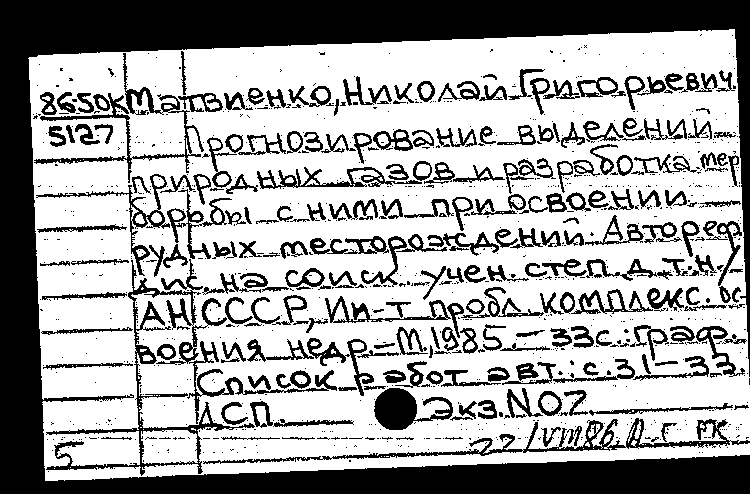 8650к Матвиенко, Николай Григорьевич.
5127 Прогнозирование выделений
природных газов и разработка мер
борьбы с ними при освоении
рудных месторождений. Автореф
дис. на соиск учен. степ д.т.н./
АН СССР, Ин-т пробл. комплекс. ос-
воения недр.-М,1985.-33с.:граф.
Список работ авт.: с.31-33.
ДСП. Экз.N07.
5